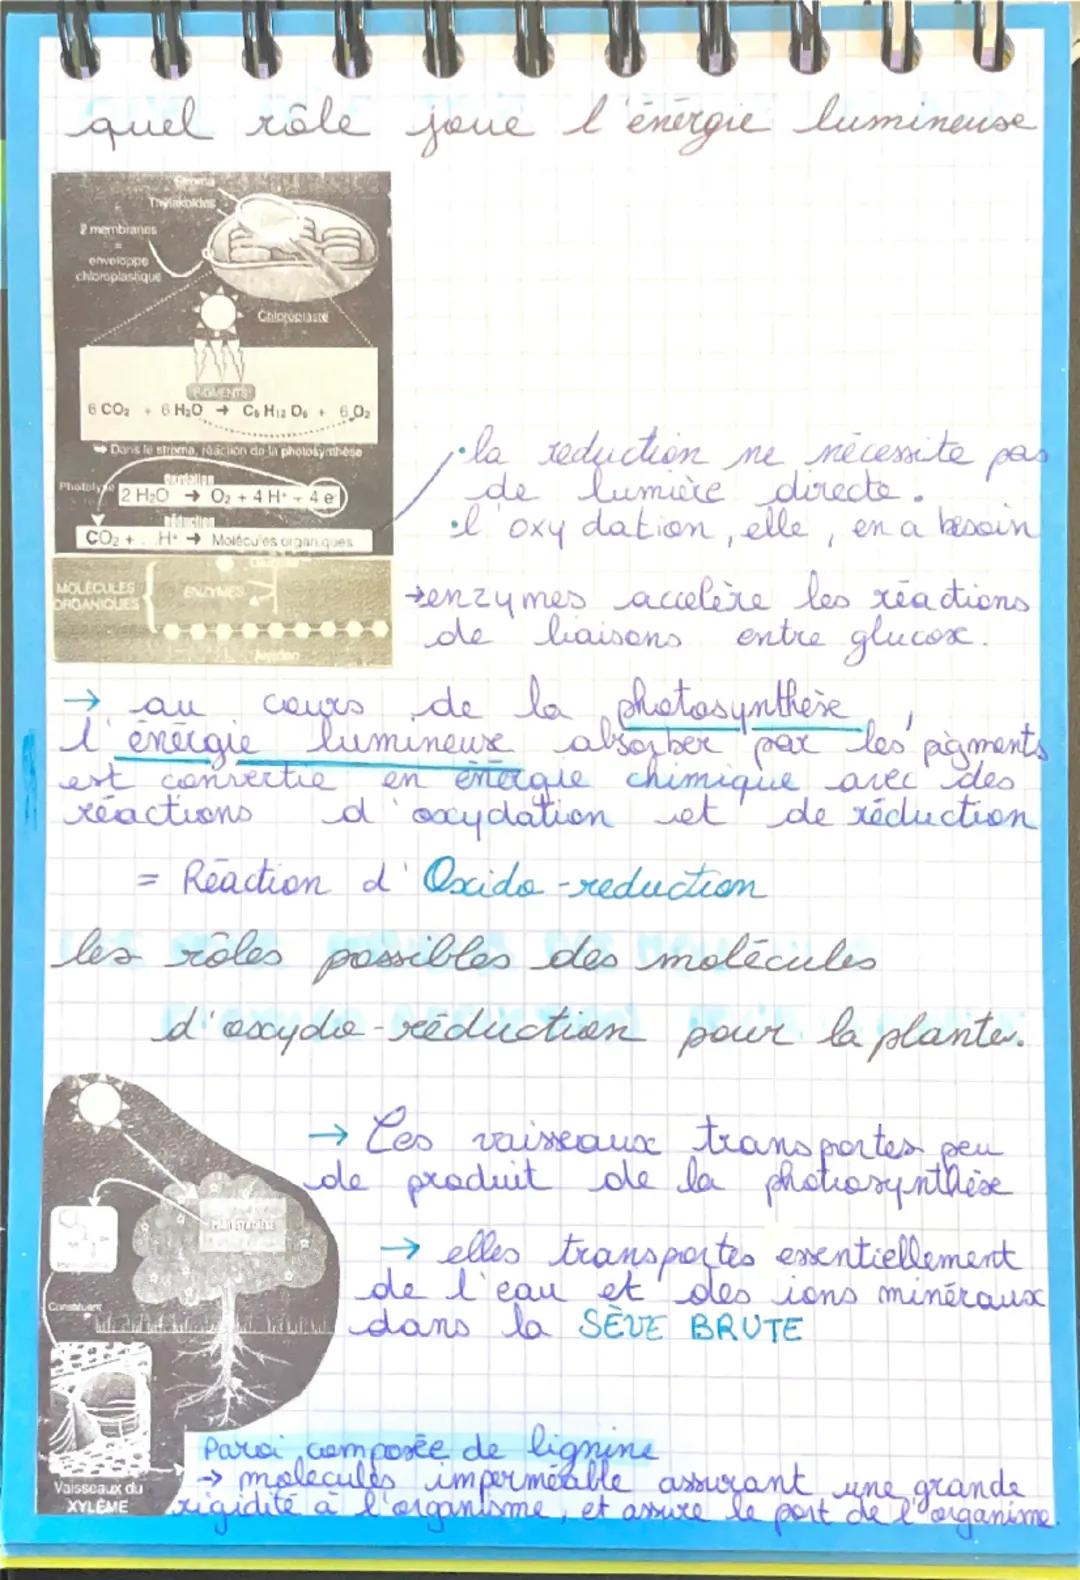 quel rôle joue l'énergie lumineuse
Thylakoïdes
2 membranes
=
enveloppe
chloroplastique
Chloroplaste
PIGMENTS
6 CO₂ + 6 H₂O → C₆ H₁₂ O₆ + 6 O₂
➡ Dans le stroma, réaction de la photosynthèse
oxydation
Photolyse
2 H₂O → O₂ + 4 H⁺ + 4 e⁻
réduction
CO₂ + ... H⁺ → Molécules organiques
MOLÉCULES
ORGANIQUES
ENZYMES
Amidon
• la reduction ne nécessite pas
de lumière directe.
• l'oxydation, elle, en a besoin
→ enzymes accelère les réactions
de liaisons entre glucose.
→ au cours de la photosynthèse,
l'énérgie lumineuse absorber par les pigments
est convertie en énérgie chimique avec des
réactions d'oxydation et de réduction
= Réaction d'Oxido-reduction
les rôles possibles des molécules
d'oxydo-réduction pour la plante.
→ Les vaisseaux transportes peu
de produit de la photosynthèse
→ elles transportes essentiellement
de l'eau et des ions minéraux
dans la SÈVE BRUTE
PHOTOSYNTHÈSE
Constituent
Vaisseaux du
XYLÈME
Paroi composée de lignine
→ molécules imperméable assurant une grande
rigidité à l'organisme, et assure le port de l'organisme.